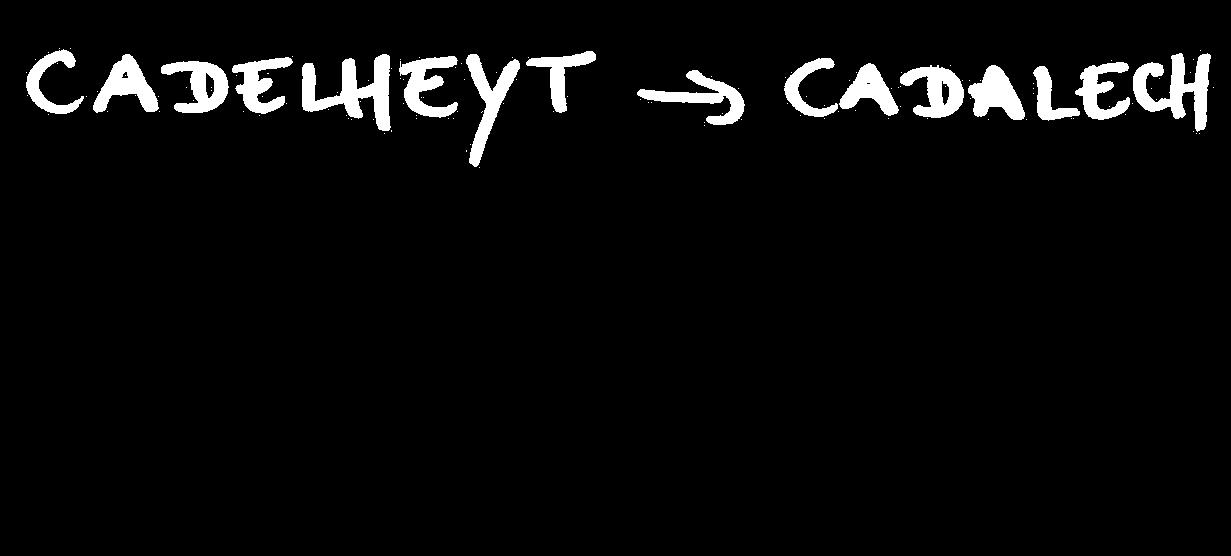 CADELHEYT → CADALECH